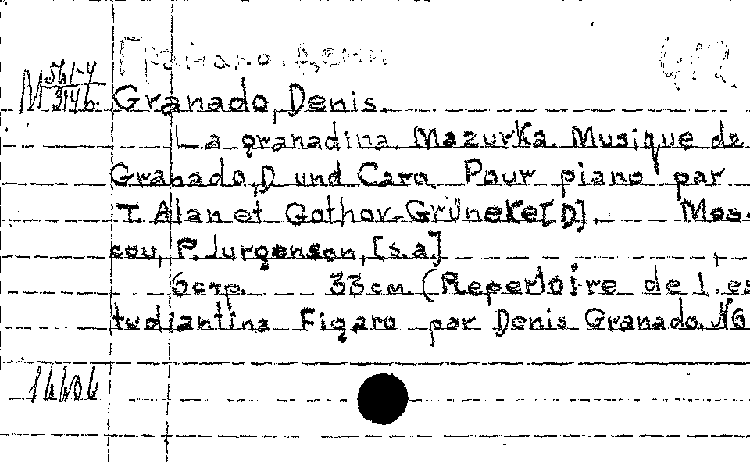 Гранадо, Дени
412
М 561-4/3146
Granado, Denis.
La granadina. Mazurka. Musique de
Granado, D. und Caro. Pour piano par
T. Alanet Gothov-Grüneke[D]. Mos-
cou, P. Jurgenson, [s.a]
6стр. 33cm. (Repertoire de l'es
tudiantina Figaro par Denis Granado. №6